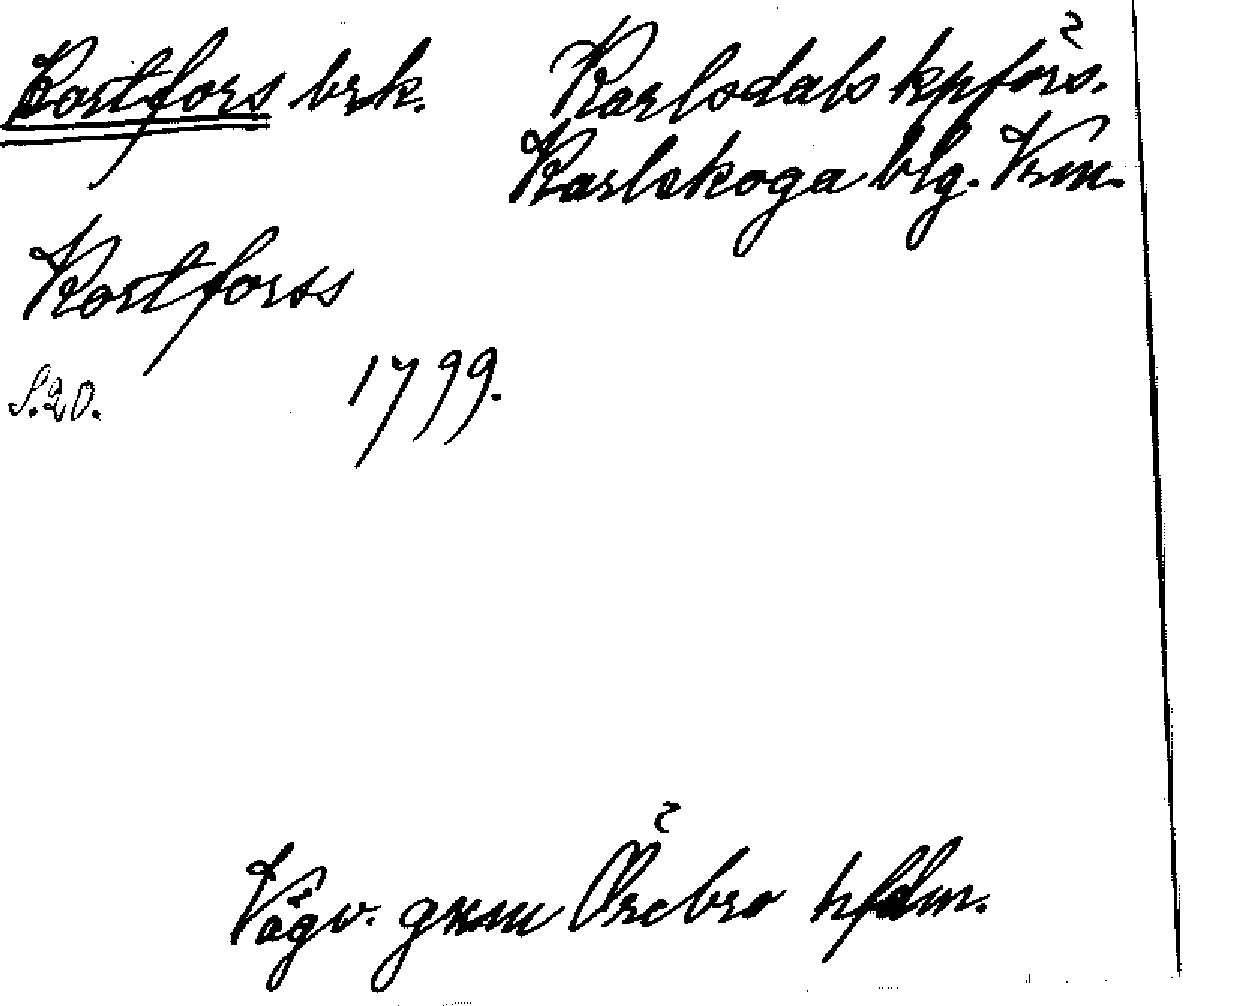 Kortfors brk. Karlsdals kpförs.
Karlskoga blg. Vrm.
Kortforss
S.20. 1799.
Vägv. gnm Örebro hfdm.